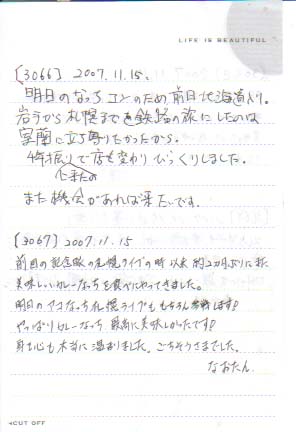 LIFE IS BEAUTIFUL
[3066] 2007.11.15.
明日のなっち コンのため前日北海道入り。
岩手から札幌まで鉄路の旅にしたのは
室蘭に立ち寄りたかったから。
4年振りで店も変わりびっくりしました。
に来たの
また機会があれば来たいです。
[3067] 2007.11.15
前回の記念版の札幌ライブの時以来 約2カ月ぶりに また
美味しいカレーなっちを食べにやってきました。
明日のアコなっち札幌ライブももちろん参戦します!
やっぱりカレーなっち 最高に美味しかったです!
身も心も本当に温まりました。ごちそうさまでした。
なおたん.
◂CUT OFF